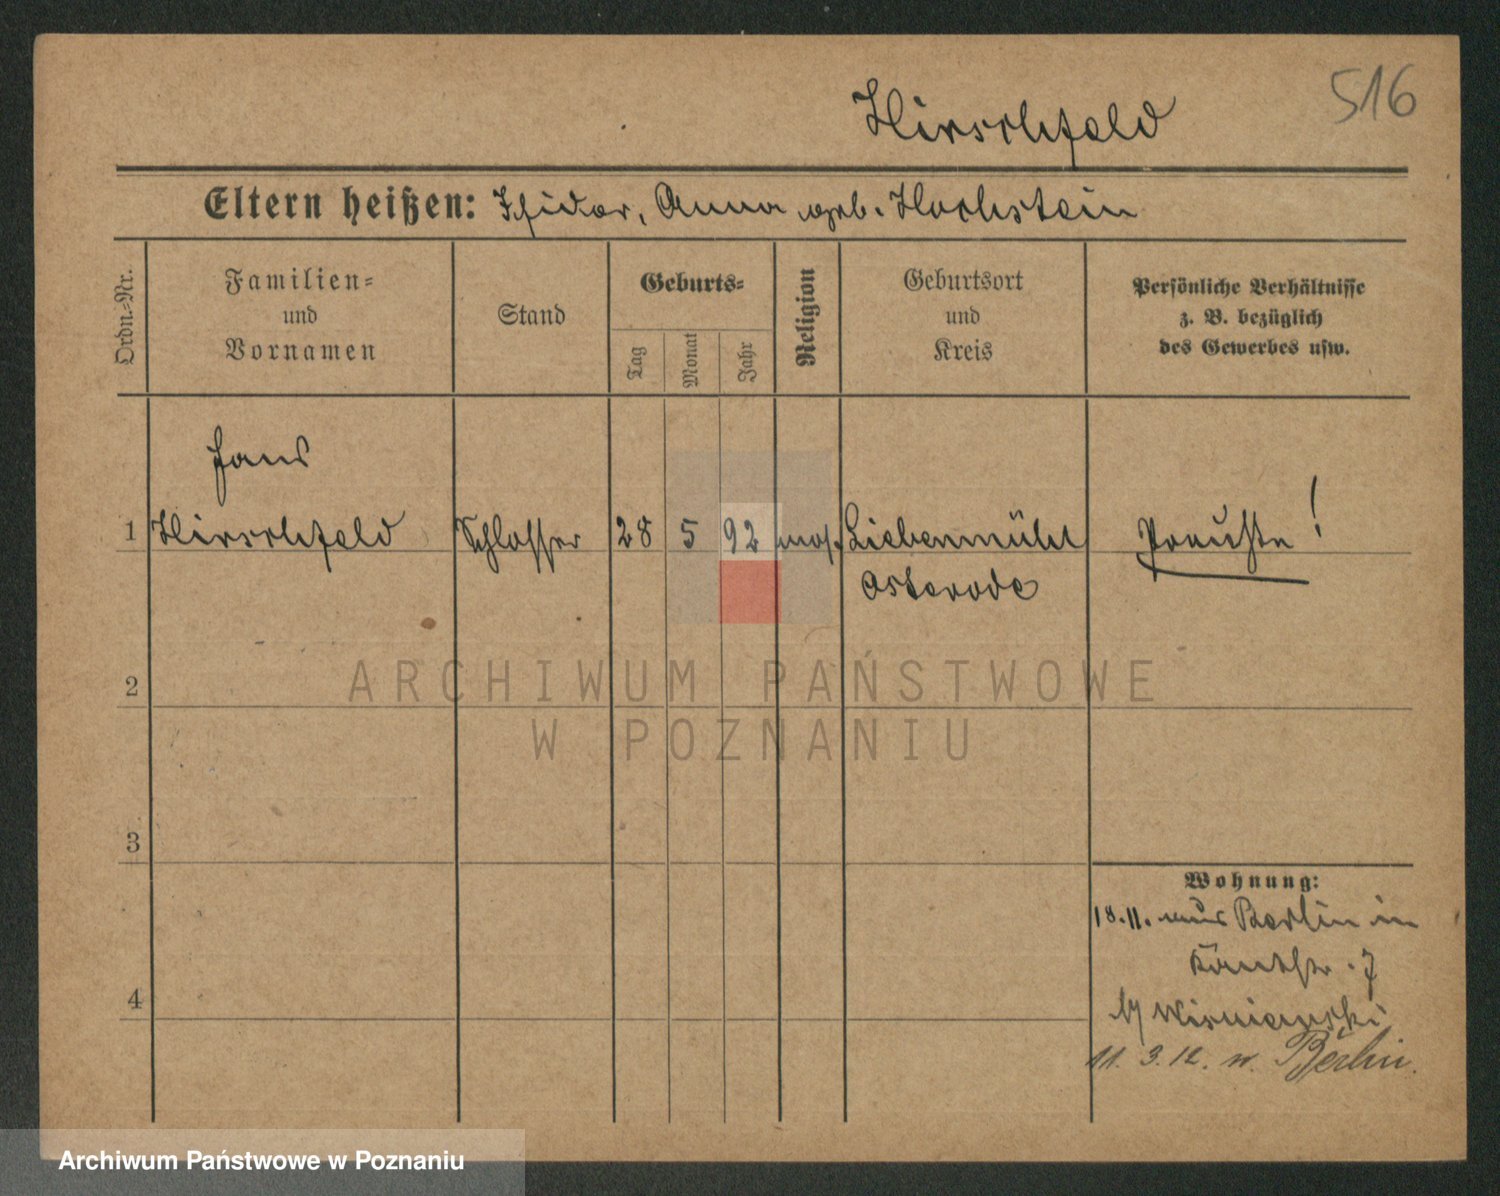 516
Hirschfeld
Eltern heißen: Isidor, Anna geb. Hochstein
Ordn.-Nr.
Familien-
und
Vornamen
Stand
Geburts-
Tag
Monat
Jahr
Religion
Geburtsort
und
Kreis
Persönliche Verhältnisse
z. B. bezüglich
des Gewerbes usw.
Hans
1 Hirschfeld Schlosser 28 5 92 mos. Liebemühl Preuße!
Osterode
ARCHIWUM PAŃSTWOWE
2
W POZNANIU
3
Wohnung:
18.11. aus Berlin in
7
4
b/ Wisniewski
11.3.12. n. Berlin.
Archiwum Państwowe w Poznaniu